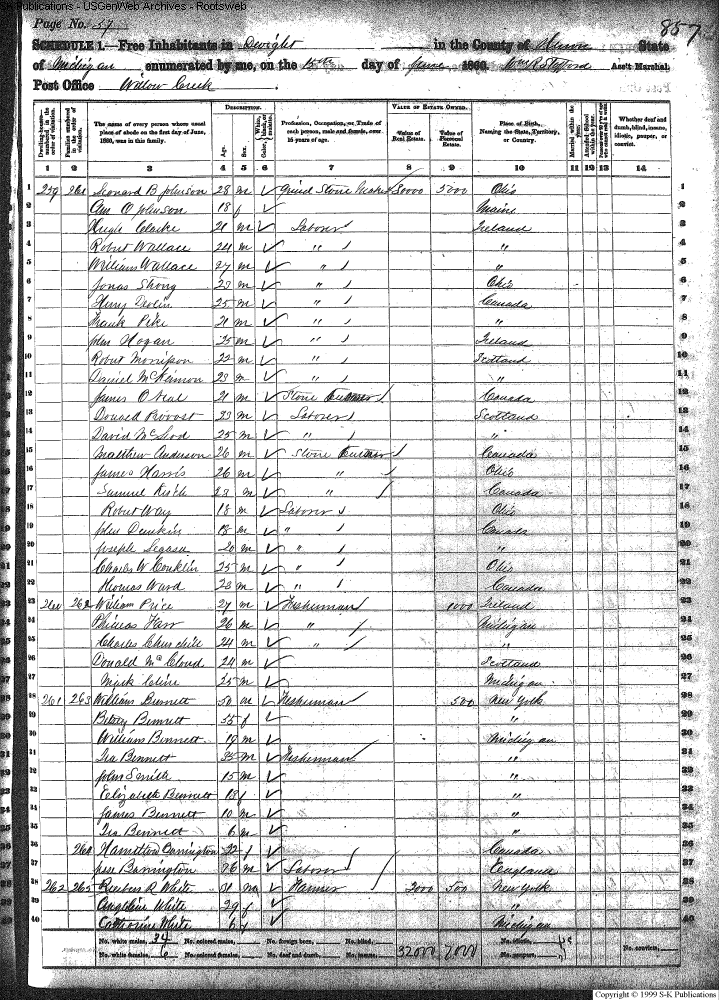 Publications - USGenWeb Archives - Rootsweb
Page No. 57
857
SCHEDULE 1.—Free Inhabitants in Dwight in the County of Huron State
of Michigan enumerated by me, on the 15th day of June 1860. Ass't Marshal.
Post Office Willow Creek
Dwelling-houses— numbered in the order of visitation.
Families numbered in the order of visitation.
The name of every person whose usual place of abode on the first day of June, 1860, was in this family.
DESCRIPTION.
Age.
Sex.
Color, White, black, or mulatto.
Profession, Occupation, or Trade of each person, male and female, over 15 years of age.
VALUE OF ESTATE OWNED.
Value of Real Estate.
Value of Personal Estate.
Place of Birth, Naming the State, Territory, or Country.
Married within the year.
Attended School within the year.
Whether deaf and dumb, blind, insane, idiotic, pauper, or convict.
1 2 3 4 5 6 7 8 9 10 11 12 13 14
1 259 261 Leonard B Johnson 28 m Grind Stone Maker 30000 5000 Ohio 1
2 Ann O Johnson 18 f Maine 2
3 Hugh Clarke 21 m Laborer Ireland 3
4 Robert Wallace 24 m " " 4
5 William Wallace 27 m " " 5
6 Jonas Strong 23 m " Ohio 6
7 Henry Devlin 25 m " Canada 7
8 Frank Pike 21 m " " 8
9 John Hogan 25 m " Ireland 9
10 Robert Morrison 22 m " Scotland 10
11 Daniel McKinnon 23 m " " 11
12 James O Neal 21 m Stone Canada 12
13 Donald 23 m Laborer Scotland 13
14 David McLeod 25 m " " 14
15 Matthew Anderson 26 m Stone Canada 15
16 James Harris 26 m " Ohio 16
17 Samuel 23 m " Canada 17
18 Robert Way 18 m Laborer Ohio 18
19 John 18 m " Canada 19
20 Joseph 20 m " " 20
21 Charles W Conklin 25 m " Ohio 21
22 Thomas Ward 23 m " Canada 22
23 260 262 William Price 27 m Fisherman 1000 Ireland 23
24 Phineas Farr 26 m " Michigan 24
25 Charles Churchill 24 m " " 25
26 Donald McCloud 24 m Scotland 26
27 Mark 25 m Michigan 27
28 261 263 William Bennett 50 m Fisherman 500 New York 28
29 Betsey Bennett 55 f " 29
30 William Bennett 19 m Michigan 30
31 Ira Bennett 35 m Fisherman " 31
32 John Smith 15 m " 32
33 Elizabeth Bennett 13 f " 33
34 James Bennett 10 m " 34
35 Ira Bennett 6 m " 35
36 264 Hamilton 32 f Canada 36
37 Jesse Barrington 36 m Laborer England 37
38 262 265 Reuben R White 31 m Farmer 2000 500 New York 38
39 Angeline White 29 f " 39
40 Catharine White 6 f Michigan 40
No. white males, 34 No. colored males, No. foreign born, No. blind, 32000 7000 No. idiotic, No. convicts,
No. white females, 6 No. colored females, No. deaf and dumb, No. insane, No. paupers,
Copyright © 1999 S-K Publications